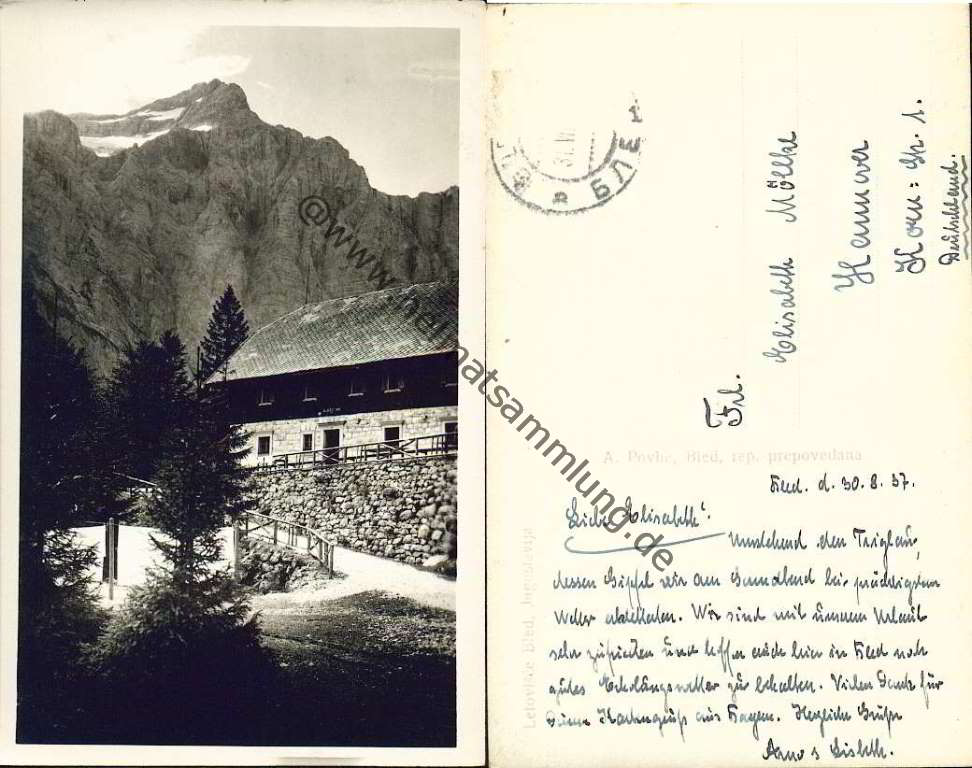 @www.heimatsammlung.de
БЛЕД
Frl.
Elisabeth Möltke
Hannover
Korn=Str. 1.
Deutschland.
A. Povhe, Bled, rep. prepovedana
Letovišče Bled, Jugoslavija
d. 30.8.37.
Liebe Elisabeth!
Umstehend den Triglav,
dessen Gipfel wir am Sonnabend bei prächtigstem
Wetter Wir sind mit unserem Urlaub
sehr zufrieden und hoffen auch hier in noch
gutes Erholungswetter zu behalten. Vielen Dank für
Deinen Kartengruß aus Hagen. Herzliche Grüße
Arno